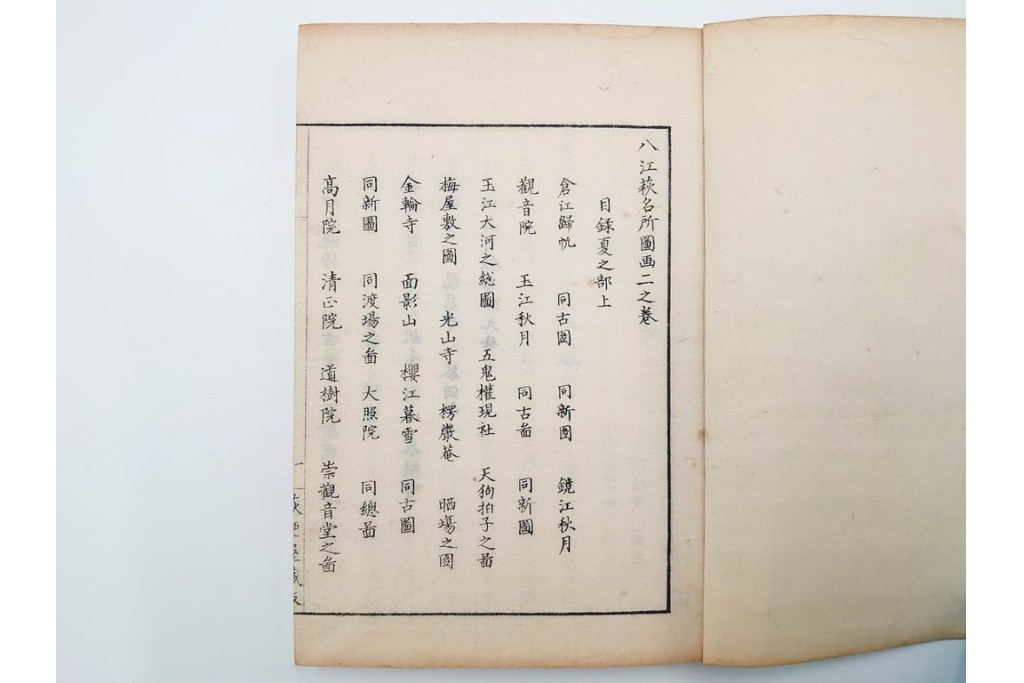 八江萩名所圖画二之巻
目録夏之部上
倉江歸帆 同古圖 同新圖 鏡江秋月
觀音院 玉江秋月 同古啚 同新圖
玉江大河之総圖 五鬼權現社 天狗拍子之啚
梅屋敷之圖 光山寺 楞嚴菴 晒場之圖
金輪寺 面影山 櫻江暮雪 同古圖
同新圖 同渡場之啚 大照院 同總啚
高月院 清正院 道樹院 崇觀音堂之啚
一